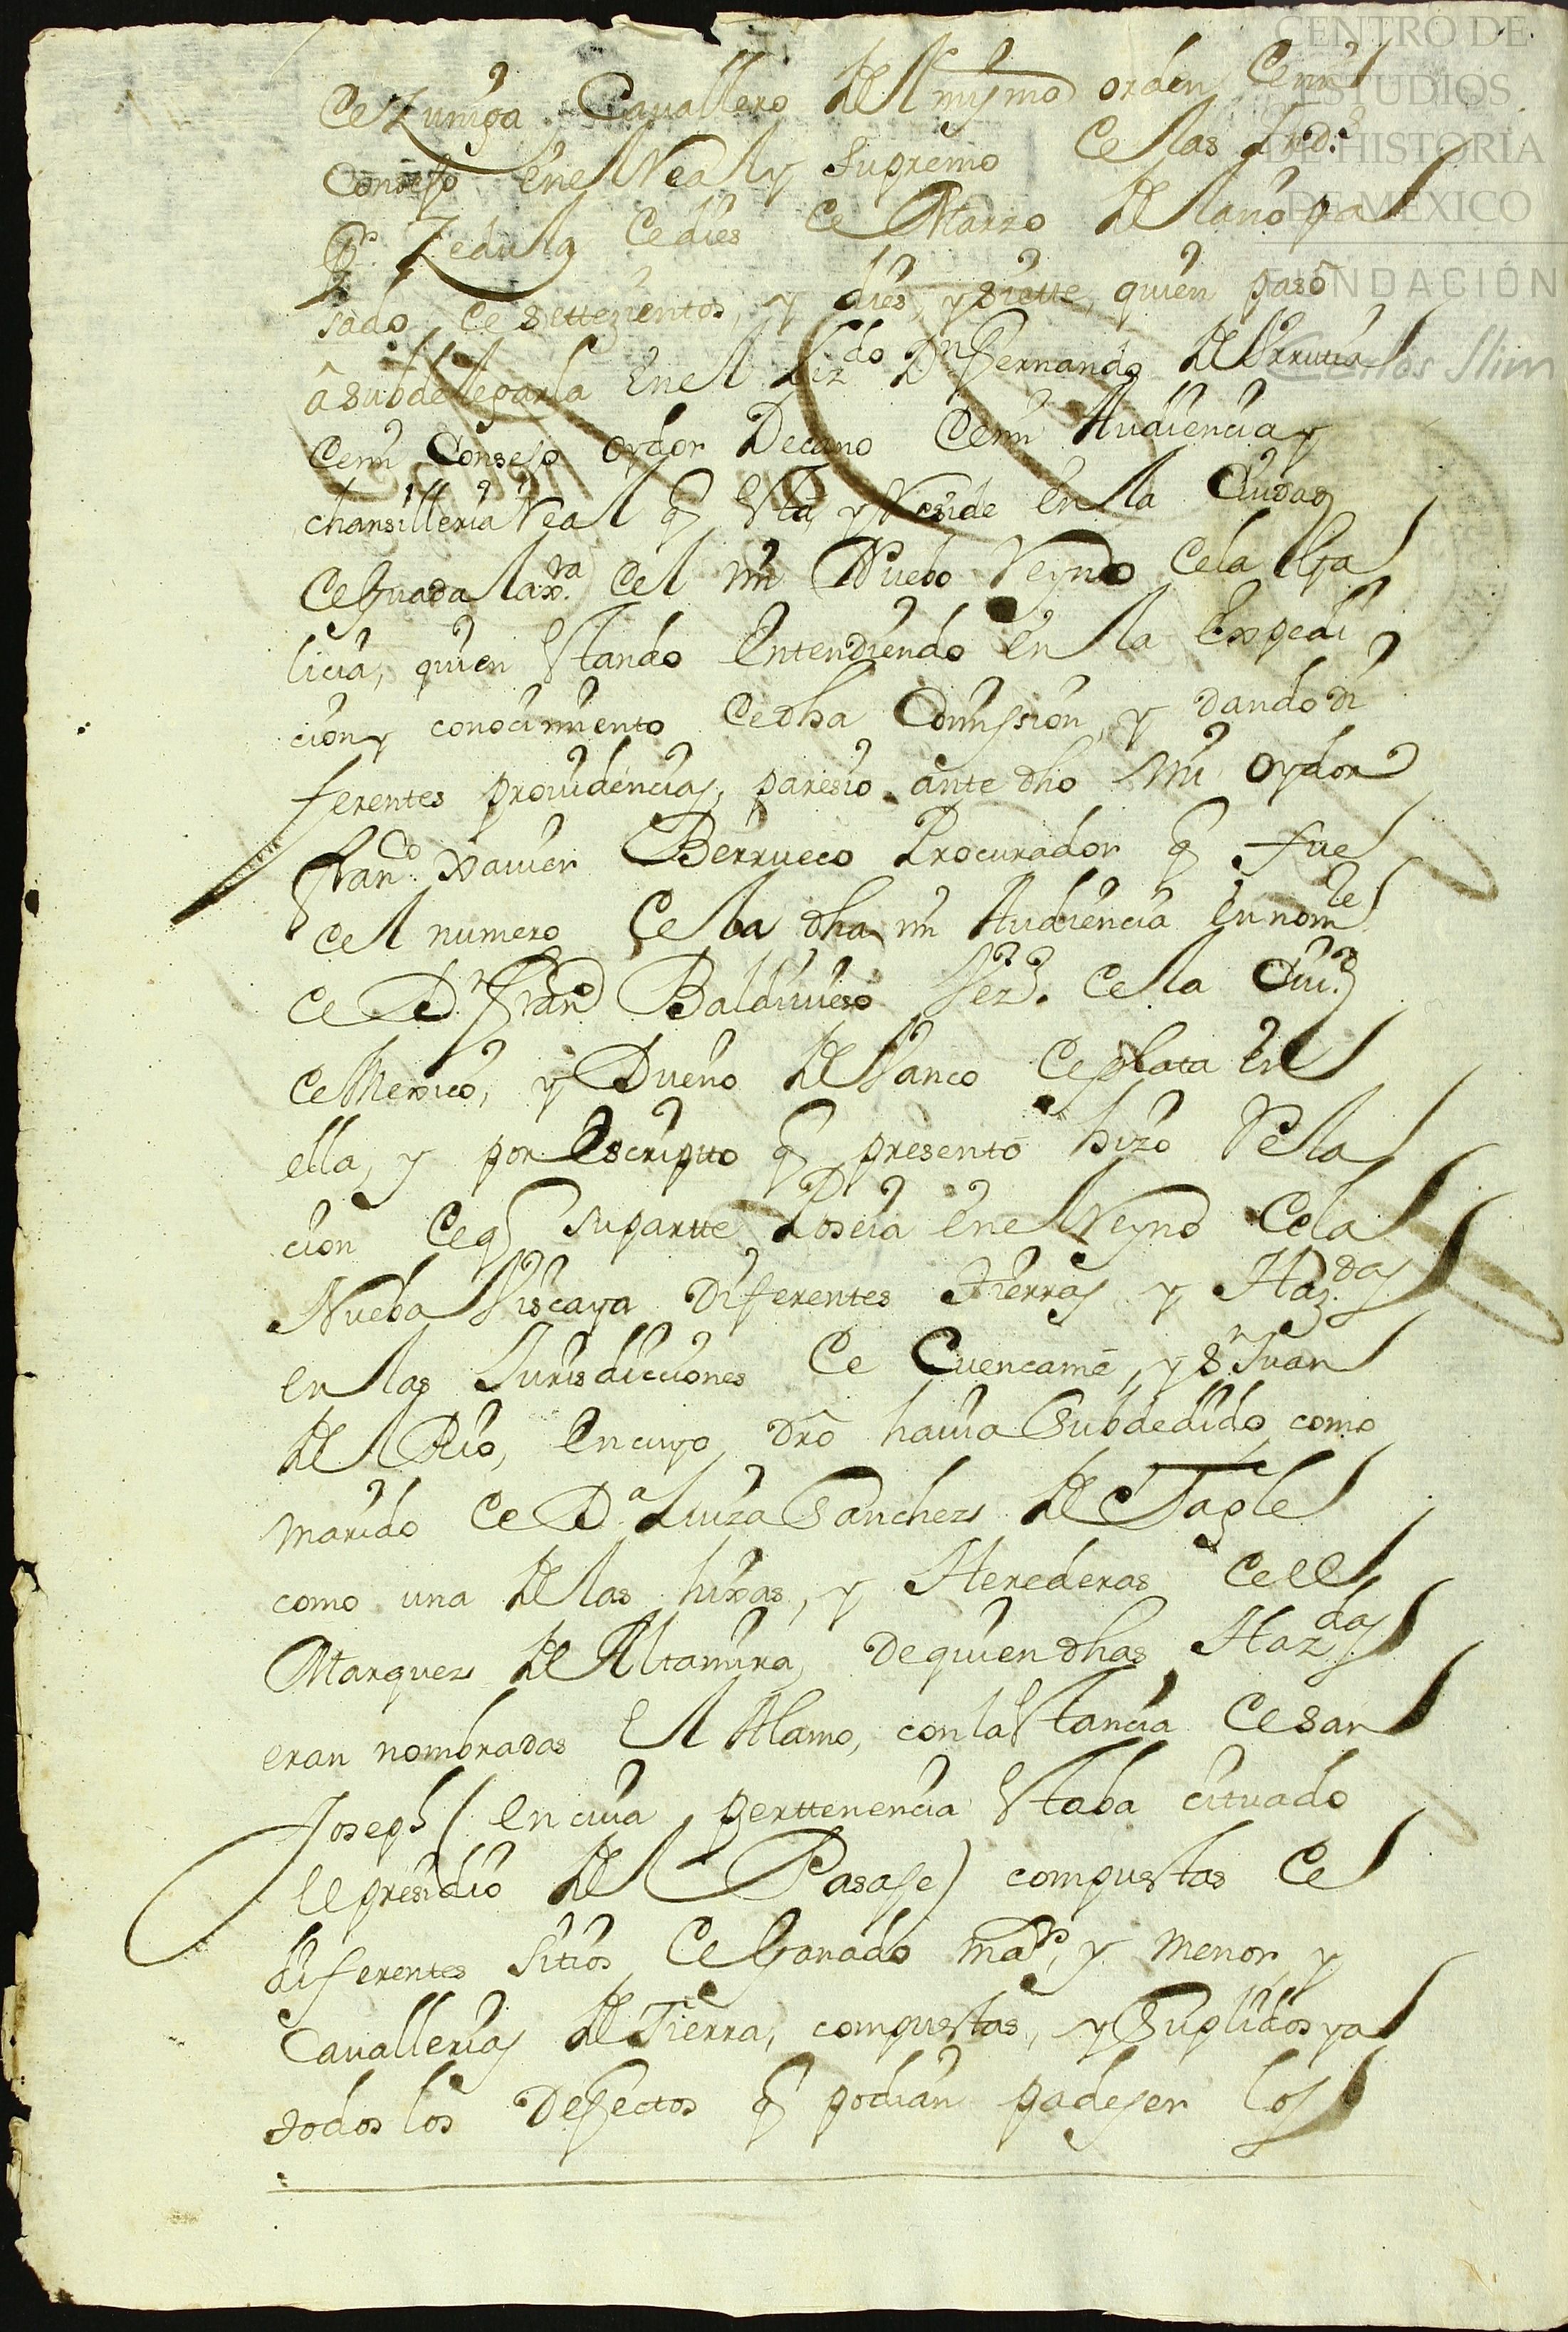 CENTRO DE
ESTUDIOS
DE HISTORIA
DE MÉXICO
FUNDACIÓN
Carlos Slim
de Zuniga Cavallero del mismo orden de mi
Consejo en el Real y Supremo de las Ind.s
Pr. Zedula de dies de Marzo del año pa
sado de settezientos, y dies, y siette, quien pasò
â subdelegarla en el Liz.do Dn Fernando de Urrutia
de mi Consejo oydor Decano de mi Audiencia y
chansilleria Real q esta, y Reside en la Ciudad
de Guadalax.ra del mi Nuebo Reyno de la Ga
licia, quien estando entendiendo en la expedi
cion y conocimiento de dha Comission, y dando di
ferentes prouidencias, paresio ante dho mi oydor
Fran.co Xauier Berrueco Procurador q fue
del numero de la dha mi Audiencia en nom.le
de Dn Fran.co Baldiuieso Vez.o de la Ciu.d
de Mexico, y Dueño del Vanco de plata en
ella, y por escriptto q presentò hizo Rela
cion de q su partte Poseia en el Reyno de la
Nueba Viscaya diferentes tierras y Haz.das
en las Jurisdicciones de Cuencamè, y Sn Juan
del Rio, en cuyo dro hauia Subdedido, como
marido de D.a Luiza Sanchez de Tagle
como una de las hixas, y Herederas de el
Marquez de Altamira, de quien dhas Haz.das
eran nombradas el Alamo, con la estancia de San
Joseph (en cuia perttenencia estaba cituado
el presidio del Pasaje) compuestas de
diferentes sitios de Ganado ma.r, y menor y
Cauallerias de Tierra, compuestas, y Suplidos ya
todos los Defectos q podian padeser los